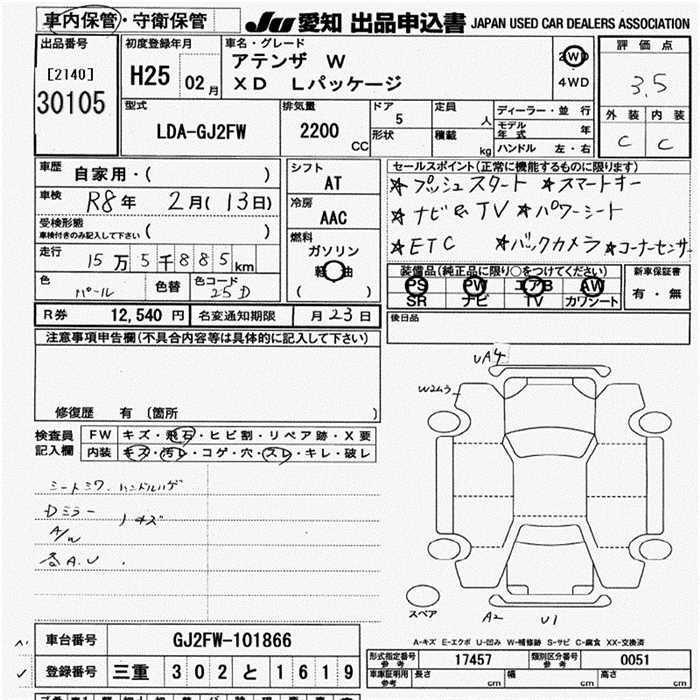 車内保管・守衛保管
JU 愛知 出品申込書 JAPAN USED CAR DEALERS ASSOCIATION
出品番号 [2140] 30105
初度登録年月 H25 02月
車名・グレード アテンザ W
XD Lパッケージ
2WD
4WD
評価点 3.5
外装 内装
C C
型式 LDA-GJ2FW
排気量 2200 CC
ドア 5
形状
定員 人
積載 kg
ディーラー・並行
モデル年式 年
ハンドル 左・右
車歴 自家用・( )
車検 R8年 2月(13日)
受検形態 車検付きのみ記入して下さい ( )
走行 15万5千885km
色 パール 色替 色コード 25D
シフト AT
冷房 AAC
燃料 ガソリン
軽油
( )
セールスポイント(正常に機能するものに限ります)
★プッシュスタート ★スマートキー
★ナビ&TV ★パワーシート
★ETC ★バックカメラ ★コーナーセンサー
装備品(純正品に限り○をつけてください) 新車保証書
PS PW エアB AW 有・無
SR ナビ TV カワシート
後日品
R券 12,540円 名変通知期限 月23日
注意事項申告欄(不具合内容等は具体的に記入して下さい)
修復歴 有 〔箇所 〕
検査員記入欄
FW キズ・飛石・ヒビ割・リペア跡・X要
内装 キズ・汚レ・コゲ・穴・スレ・キレ・破レ
シートシワ ハンドルハゲ
Dミラー
A/W キズ
各A.U
UA4
W2ムラ
スペア
A2 U1
A-キズ E-エクボ U-凹み W-補修跡 S-サビ C-腐食 XX-交換済
車台番号 GJ2FW-101866
登録番号 三重 302 と 1619
形式指定番号 参考 17457 類別区分番号 参考 0051
車庫証明用 参考 長さ cm 幅 cm 高さ cm